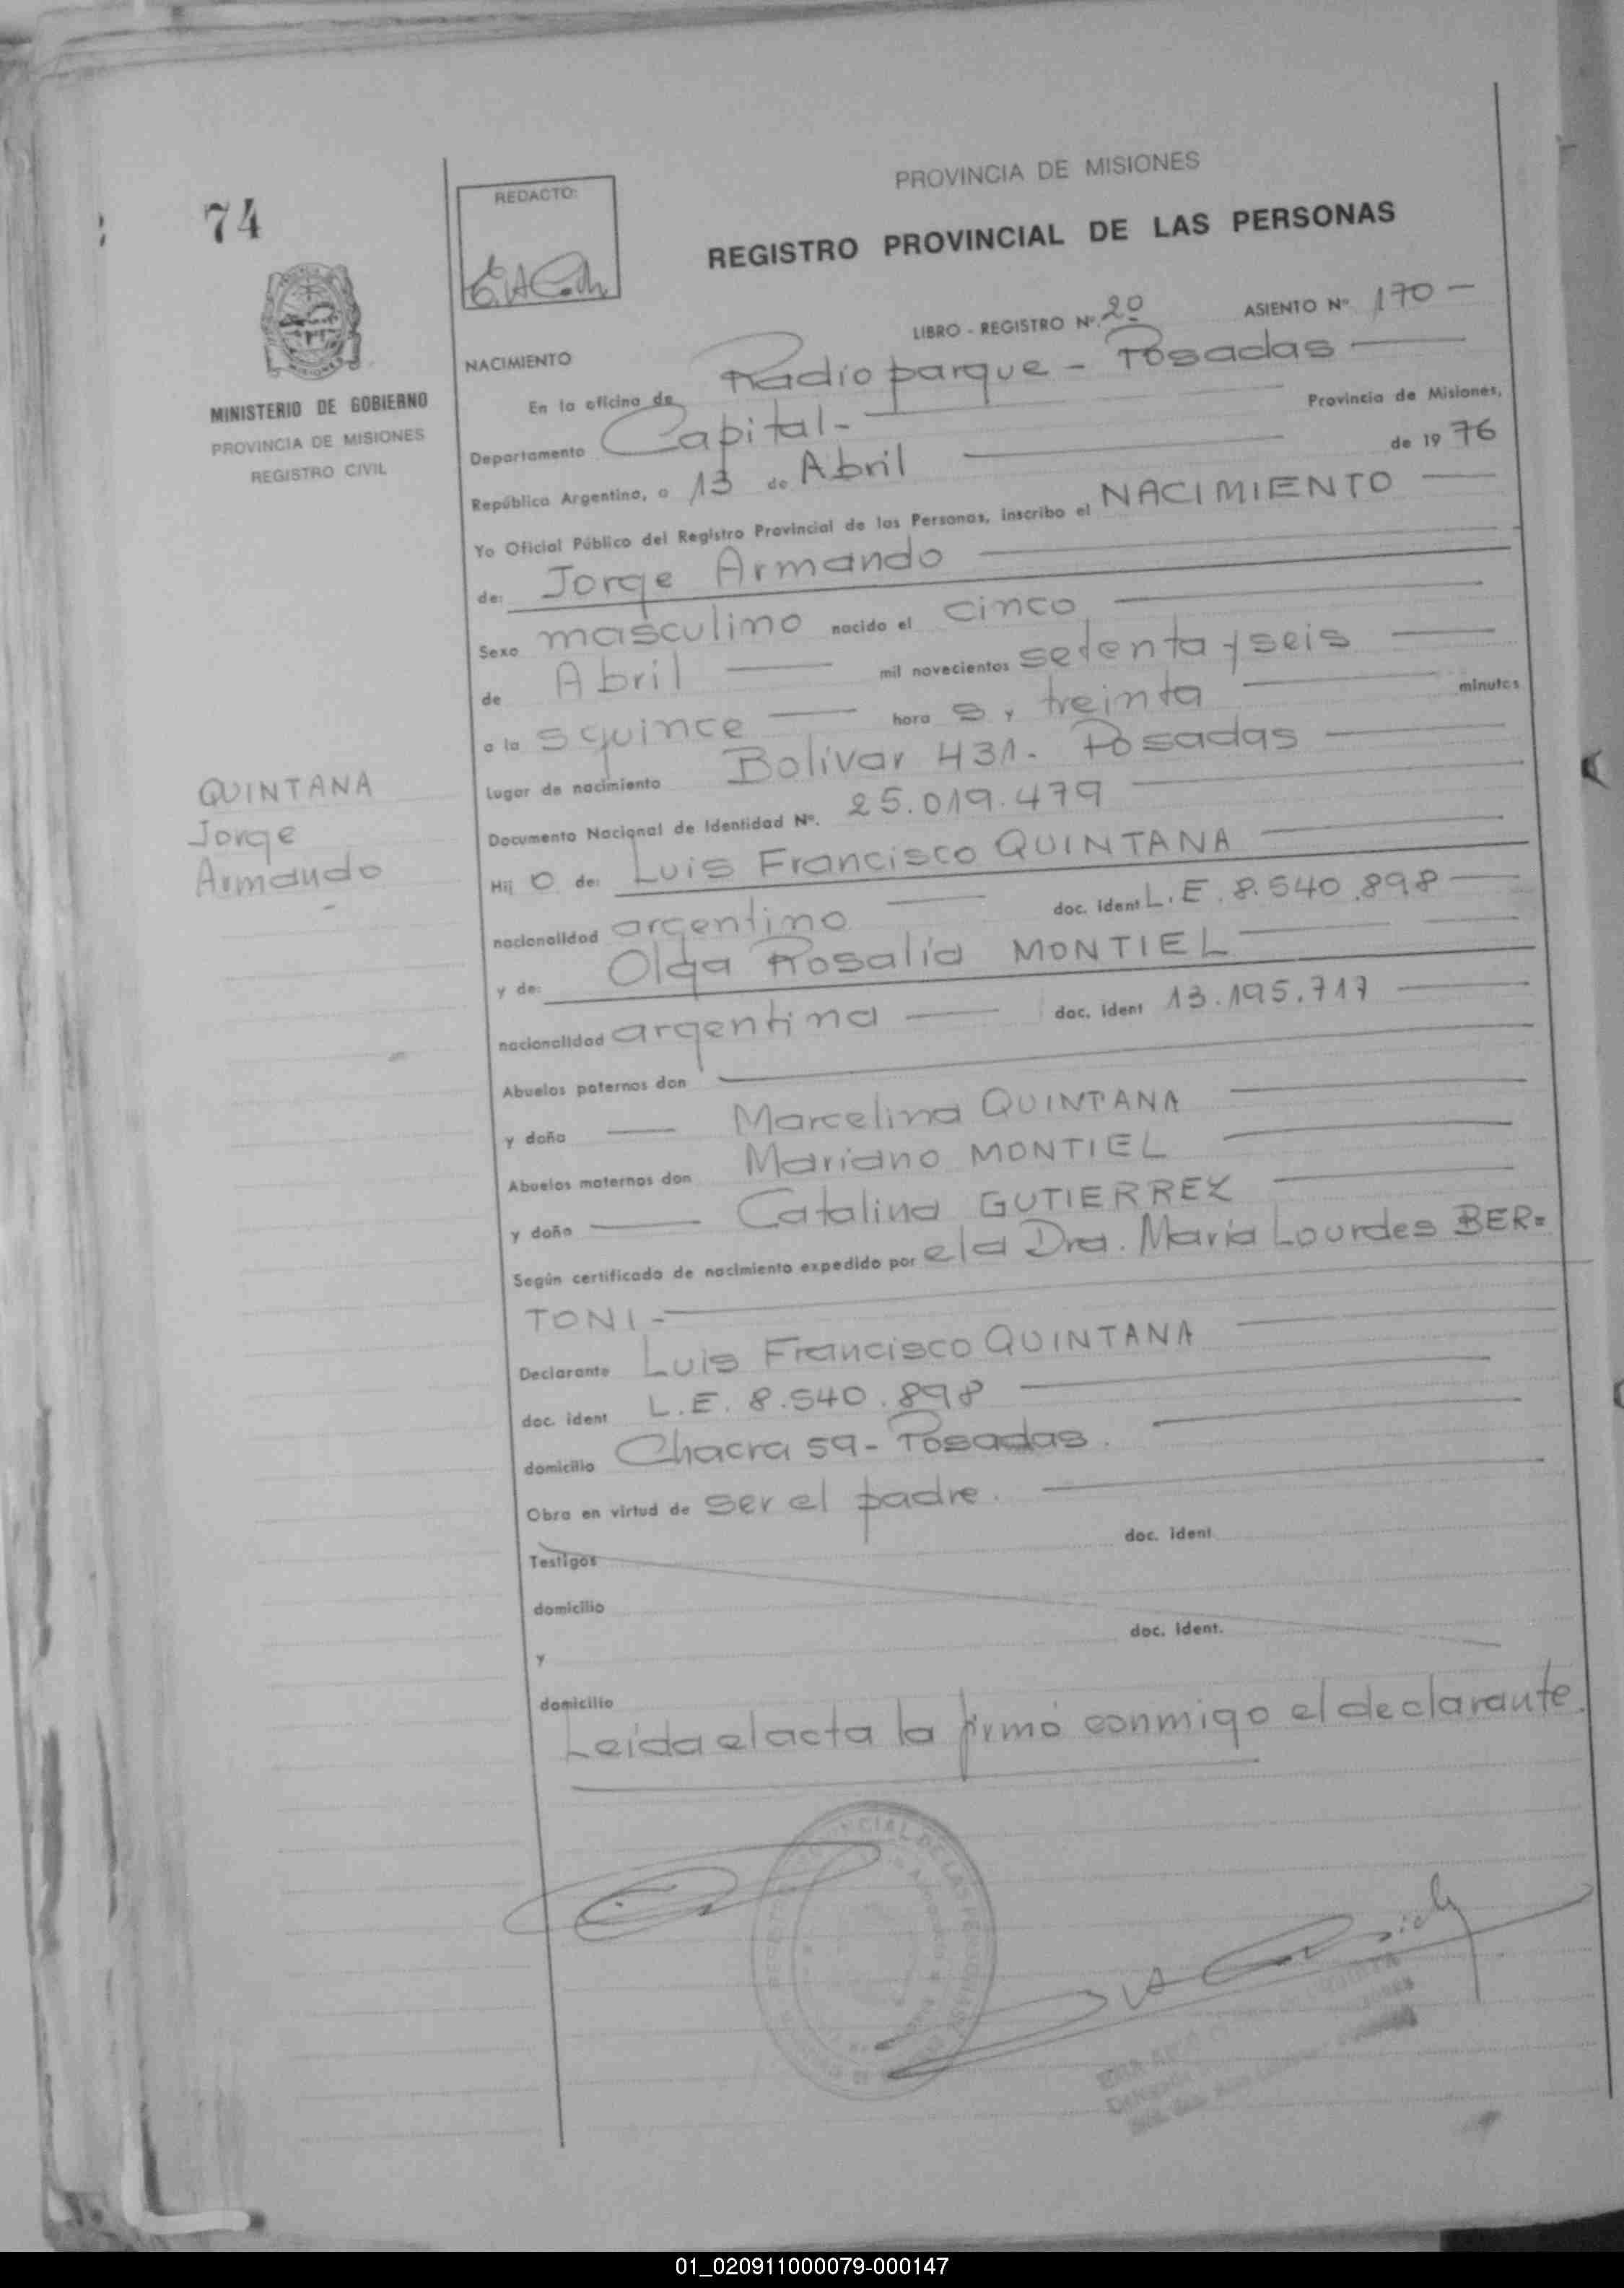 74
MINISTERIO DE GOBIERNO
PROVINCIA DE MISIONES
REGISTRO CIVIL
QUINTANA
Jorge
Armando
REDACTO:
PROVINCIA DE MISIONES
REGISTRO PROVINCIAL DE LAS PERSONAS
LIBRO - REGISTRO Nº. 2º ASIENTO Nº 170 -
NACIMIENTO
En la oficina de Radioparque - Posadas
Departamento Capital - Provincia de Misiones,
República Argentina, a 13 de Abril de 1976
Yo Oficial Público del Registro Provincial de las Personas, inscribo el NACIMIENTO
de: Jorge Armando
Sexo masculino nacido el cinco
de Abril mil novecientos setenta y seis
a la s quince hora s y treinta minutos
lugar de nacimiento Bolivar 431. Posadas
Documento Nacional de Identidad Nº. 25.019.479
Hij o de: Luis Francisco QUINTANA
nacionalidad argentino doc. ident L.E. 8.540.898
y de: Olga Rosalia MONTIEL
nacionalidad argentina doc. ident 13.195.717
Abuelos paternos don
y doña Marcelina QUINTANA
Abuelos maternos don Mariano MONTIEL
y doña Catalina GUTIERREZ
Según certificado de nacimiento expedido por el a Dra. María Lourdes BER=
TONI -
Declarante Luis Francisco QUINTANA
doc. ident L.E. 8.540.898
domicilio Chacra 59 - Posadas.
Obra en virtud de ser el padre.
Testigos doc. ident.
domicilio
y doc. ident.
domicilio
Leida el acta la firmó conmigo el declarante.
01_020911000079-000147